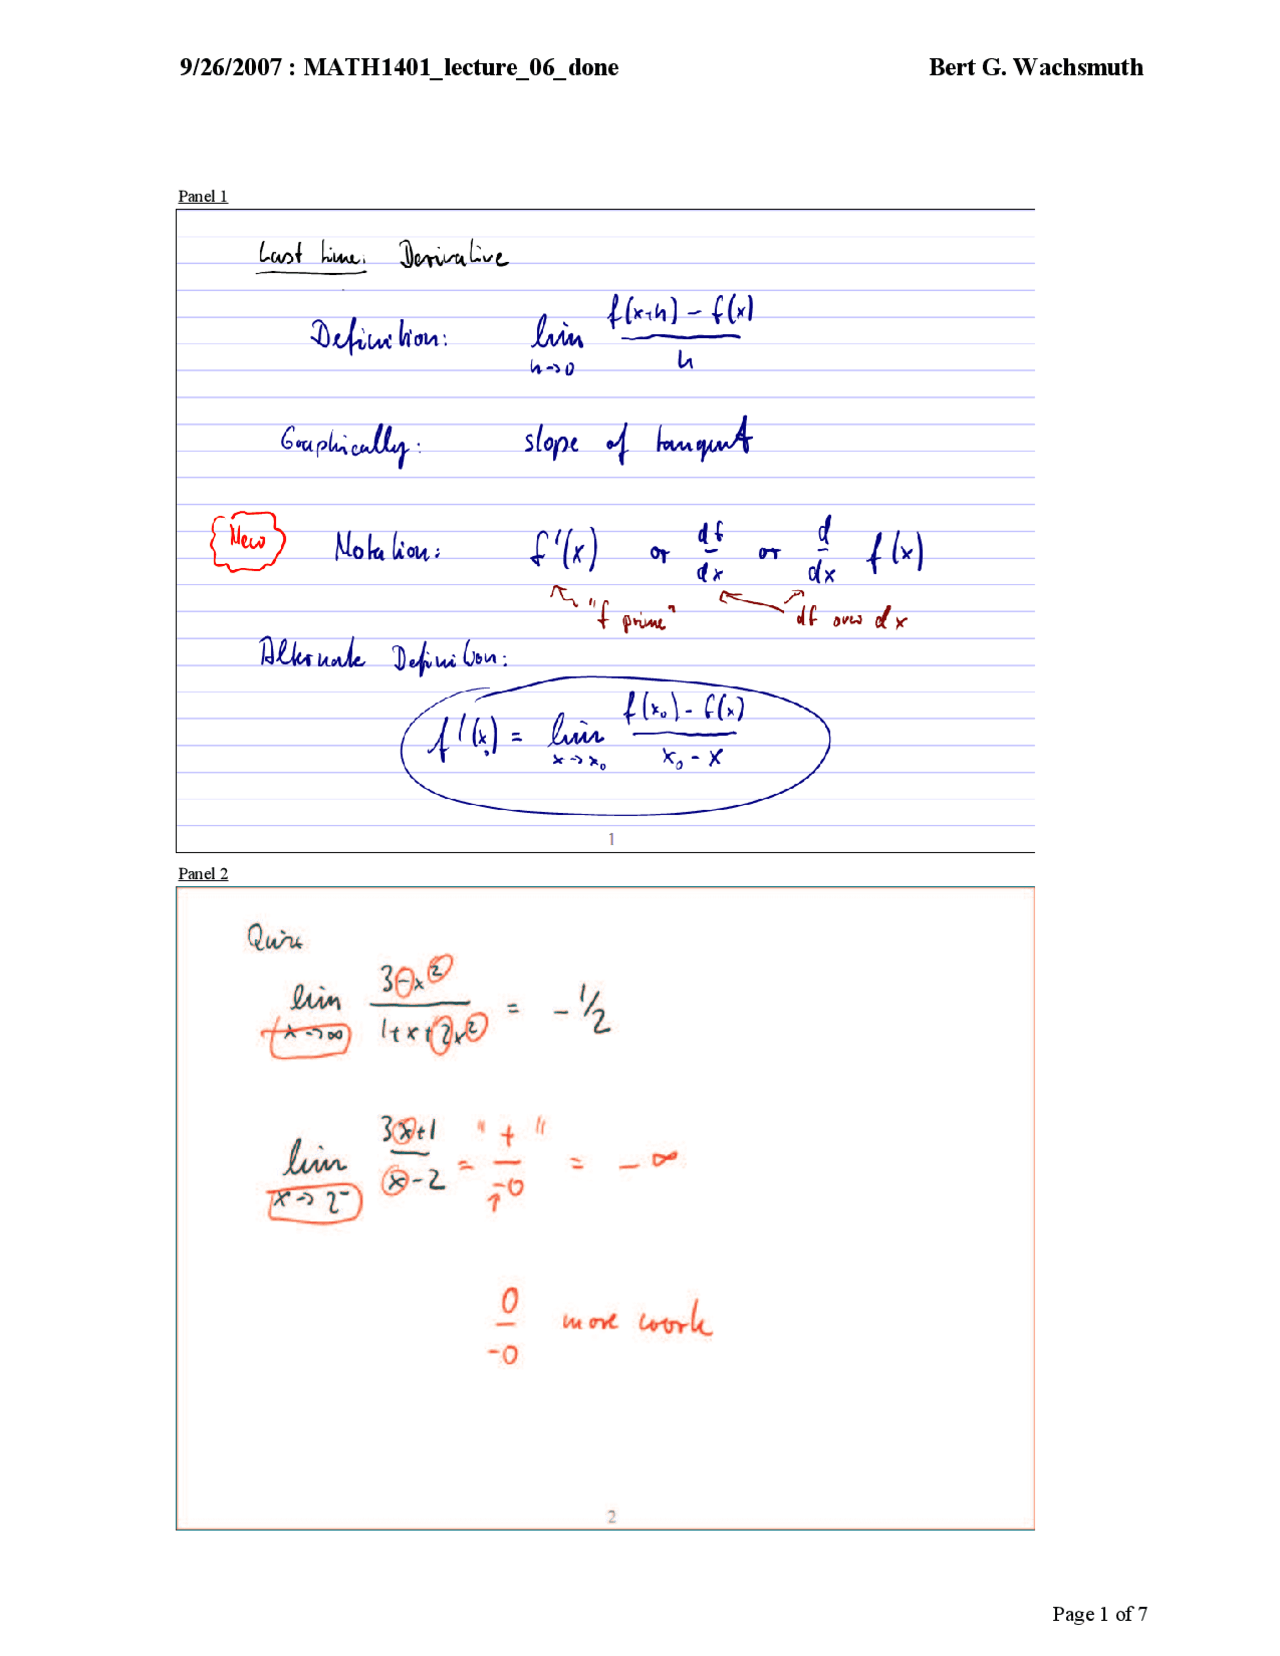 9/26/2007 : MATH1401_lecture_06_done Bert G. Wachsmuth
Panel 1
Last time: Derivative
Definition: lim h→0 (f(x+h) - f(x)) / h
Graphically: slope of tangent
New Notation: f'(x) or df/dx or d/dx f(x)
"f prime" df over dx
Alternate Definition:
f'(x₀) = lim x→x₀ (f(x₀) - f(x)) / (x₀ - x)
1
Panel 2
Quiz
lim x→∞ (3-x²) / (1+x+2x²) = -1/2
lim x→2⁻ (3x+1) / (x-2) = "+ / -0" = -∞
0 / -0 more work
2
Page 1 of 7